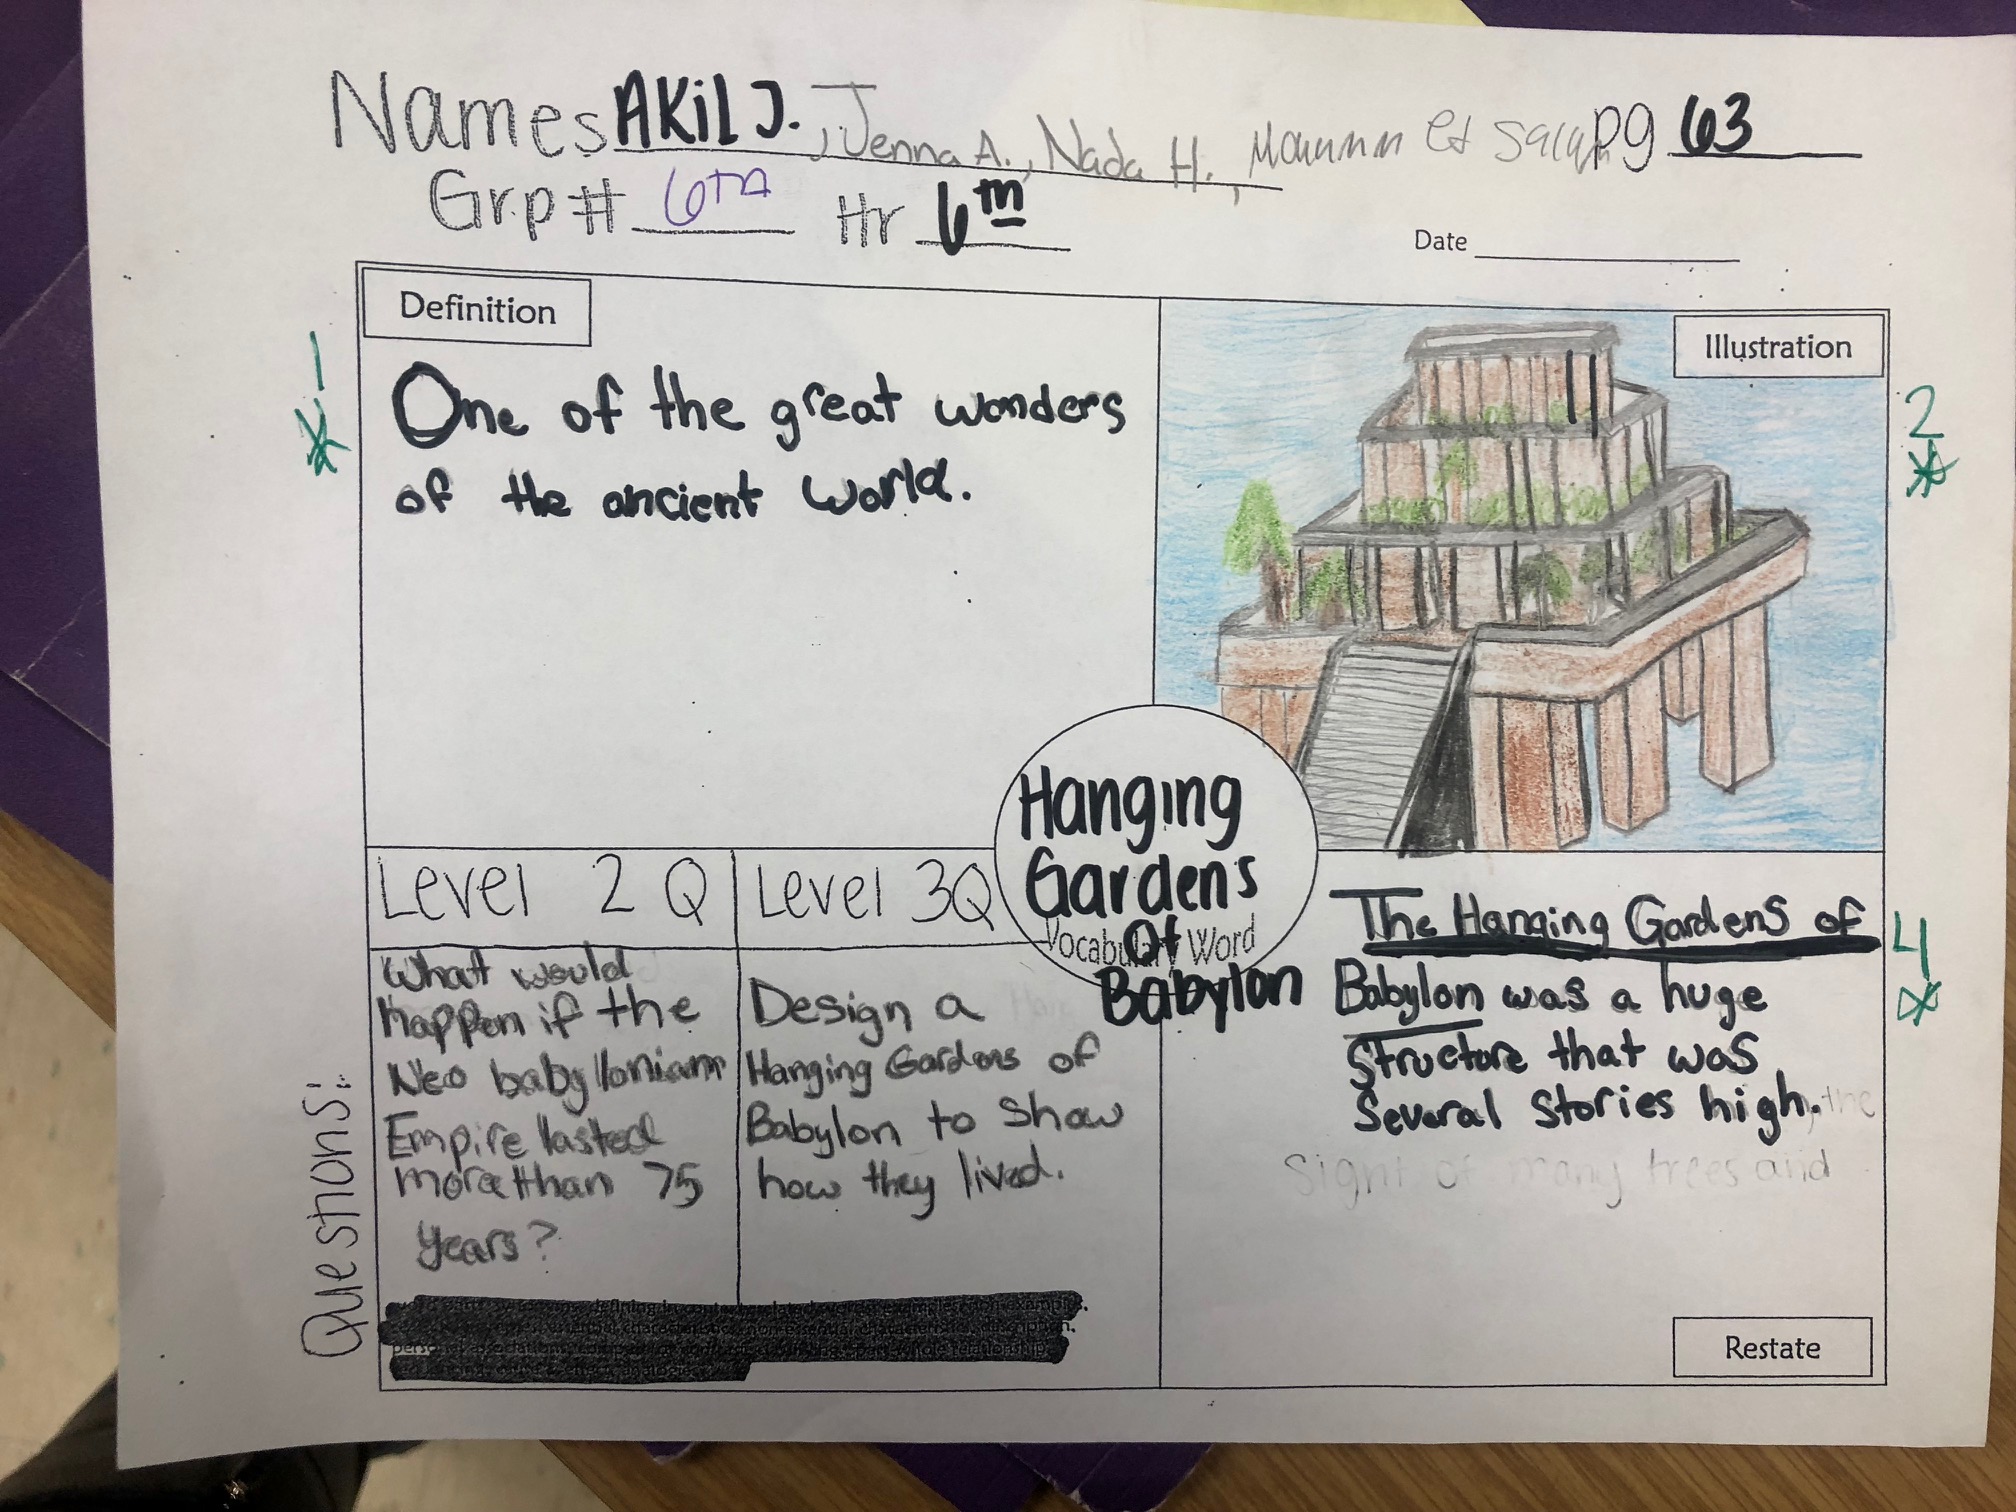 Names AKiL J. , Jenna A., Nada H., pg 63
Grp # 6TH Hr 6TH
Date
Definition
1
One of the great wonders
of the ancient world.
Illustration
2
Hanging
Gardens
Of
Vocabulary Word
Babylon
Questions:
Level 2 Q
What would
happen if the
Neo babylloniam
Empire lasted
more than 75
years?
Level 3Q
Design a
Hanging Gardens of
Babylon to show
how they lived.
4
The Hanging Gardens of
Babylon was a huge
Structure that was
Several stories high. the
sight of many trees and
Restate